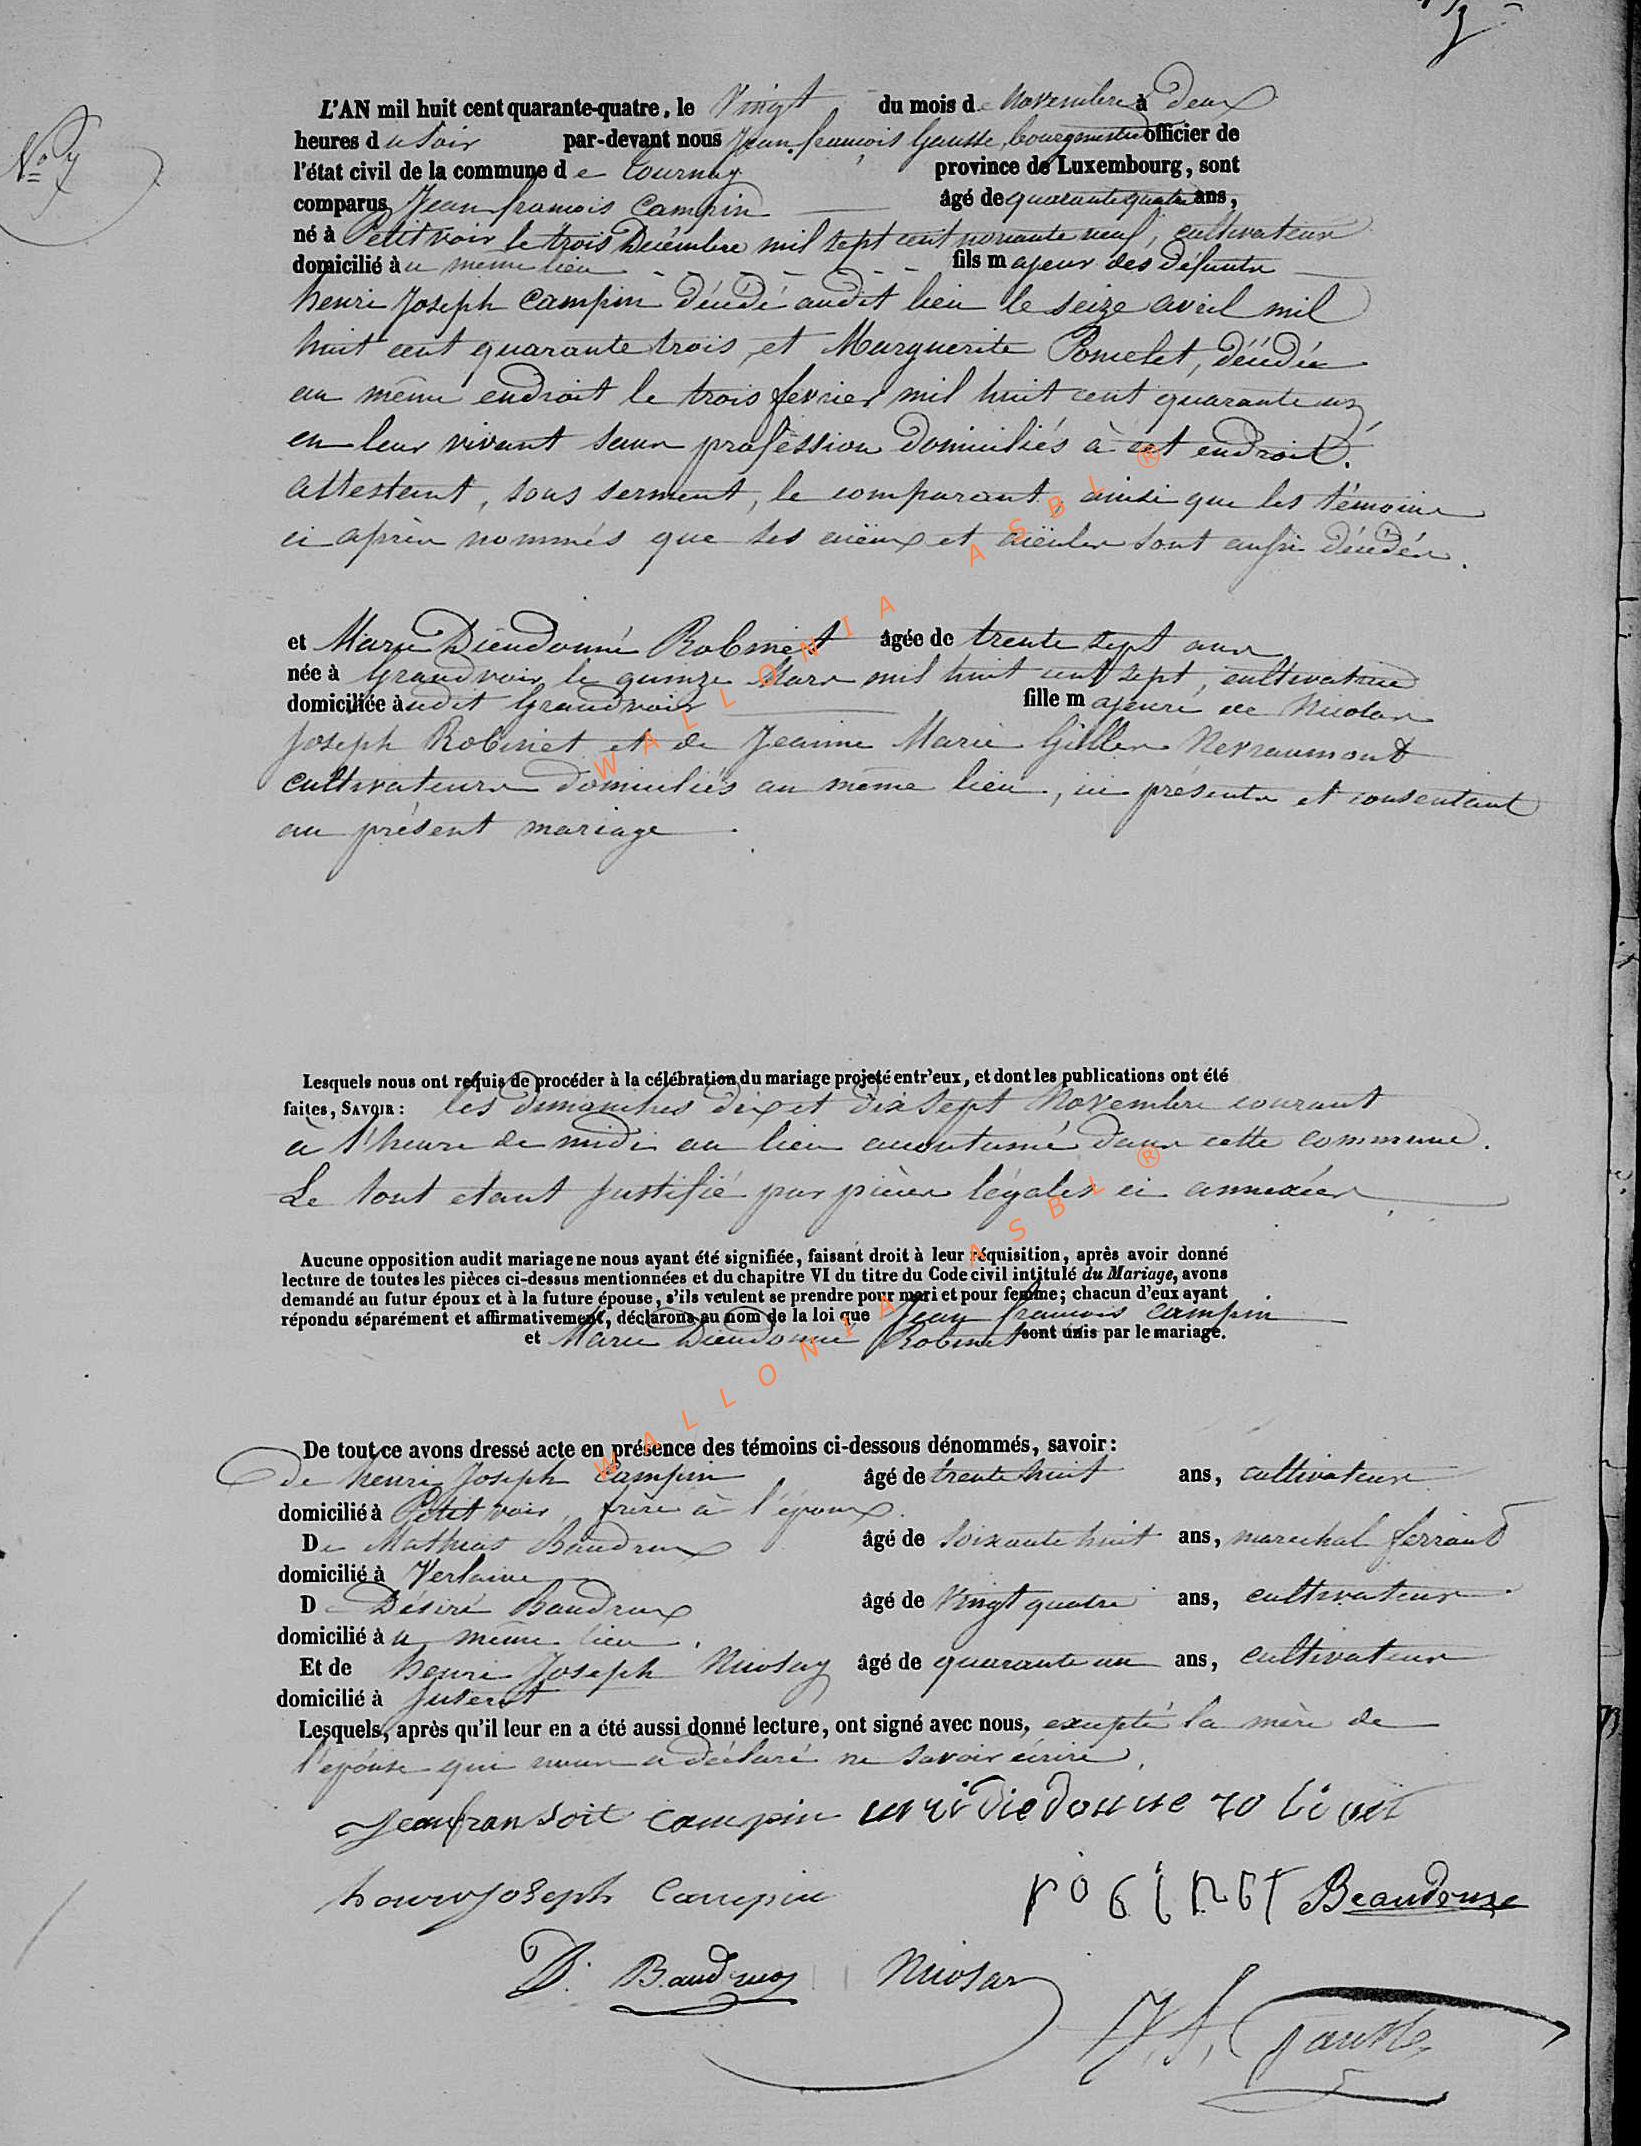 N° 7
L'AN mil huit cent quarante-quatre, le Vingt du mois de Novembre à deux
heures du Soir par-devant nous Jean-françois Gausse, bourgmestre officier de
l'état civil de la commune de Tournay province de Luxembourg, sont
comparus Jean françois Campin âgé de quarante quatre ans,
né à Petitvoir le trois Décembre mil sept cent nonante neuf, cultivateur
domicilié au même lieu fils majeur des défunts
henri Joseph Campin décédé audit lieu le seize avril mil
huit cent quarante trois, et Marguerite Poncelet, décédée
au même endroit le trois fevrier mil huit cent quarante un,
en leur vivant sans profession domiciliés à cet endroit.
attestant, sous serment, le comparant, ainsi que les témoins
ci après nommés que ses aïeux et aïeules sont aussi décédés.
et Marie Dieudonné Robinet âgée de trente sept ans
née à Grandvoir, le quinze Mars mil huit cent sept, cultivatrice
domiciliée audit Grandvoir fille majeure de Nicolas
Joseph Robinet et de Jeanne Marie Gilles Nevraumont
cultivateurs domiciliés au même lieu, ici présents et consentant
au présent mariage.
Lesquels nous ont requis de procéder à la célébration du mariage projeté entr'eux, et dont les publications ont été
faites, SAVOIR : les dimanches dix et dix sept Novembre courant
à l'heure de midi au lieu accoutumé dans cette commune.
Le tout etant justifié par pièces légales ci annexées
Aucune opposition audit mariage ne nous ayant été signifiée, faisant droit à leur réquisition, après avoir donné
lecture de toutes les pièces ci-dessus mentionnées et du chapitre VI du titre du Code civil intitulé du Mariage, avons
demandé au futur époux et à la future épouse, s'ils veulent se prendre pour mari et pour femme; chacun d'eux ayant
répondu séparément et affirmativement, déclarons au nom de la loi que Jean françois Campin
et Marie Dieudonné Robinet sont unis par le mariage.
De tout ce avons dressé acte en présence des témoins ci-dessous dénommés, savoir :
de henri Joseph Campin âgé de trente huit ans, cultivateur
domicilié à Petit voir, frère à l'époux.
De Mathias Baudrux âgé de soixante huit ans, marechal ferrant
domicilié à Verlaine
De Désiré Baudrux âgé de Vingt quatre ans, cultivateur
domicilié au même lieu.
Et de henri Joseph Nicolay âgé de quarante un ans, cultivateur
domicilié à Juseret
Lesquels, après qu'il leur en a été aussi donné lecture, ont signé avec nous, excepté la mère de
l'épouse qui nous a déclaré ne savoir écrire.
Jeanfransoit Campin mari diedonne robinet
henry joseph Campin robinet Beaudoux
D. Baudrux Nicolay
J. f. Gausse
WALLONIA ASBL ®
WALLONIA ASBL ®